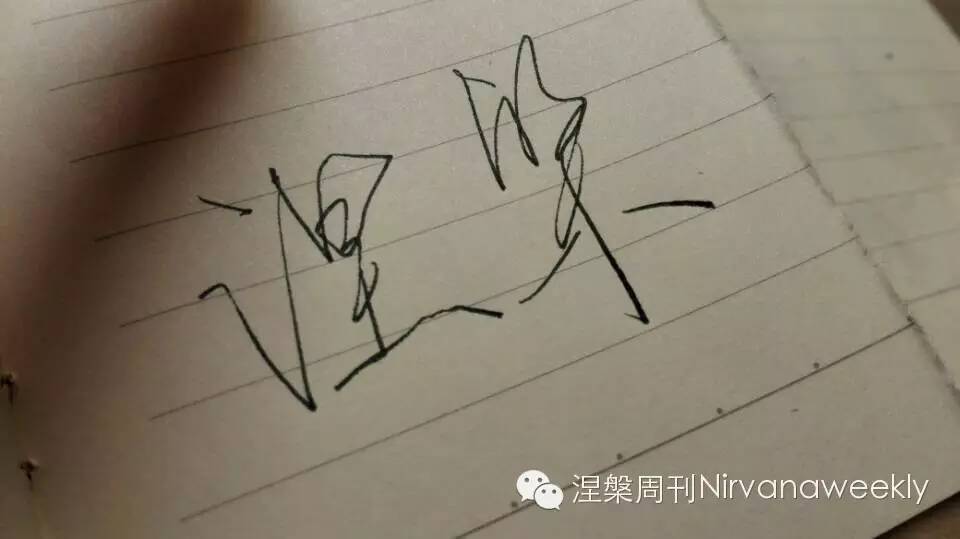 涅槃
涅槃周刊Nirvanaweekly